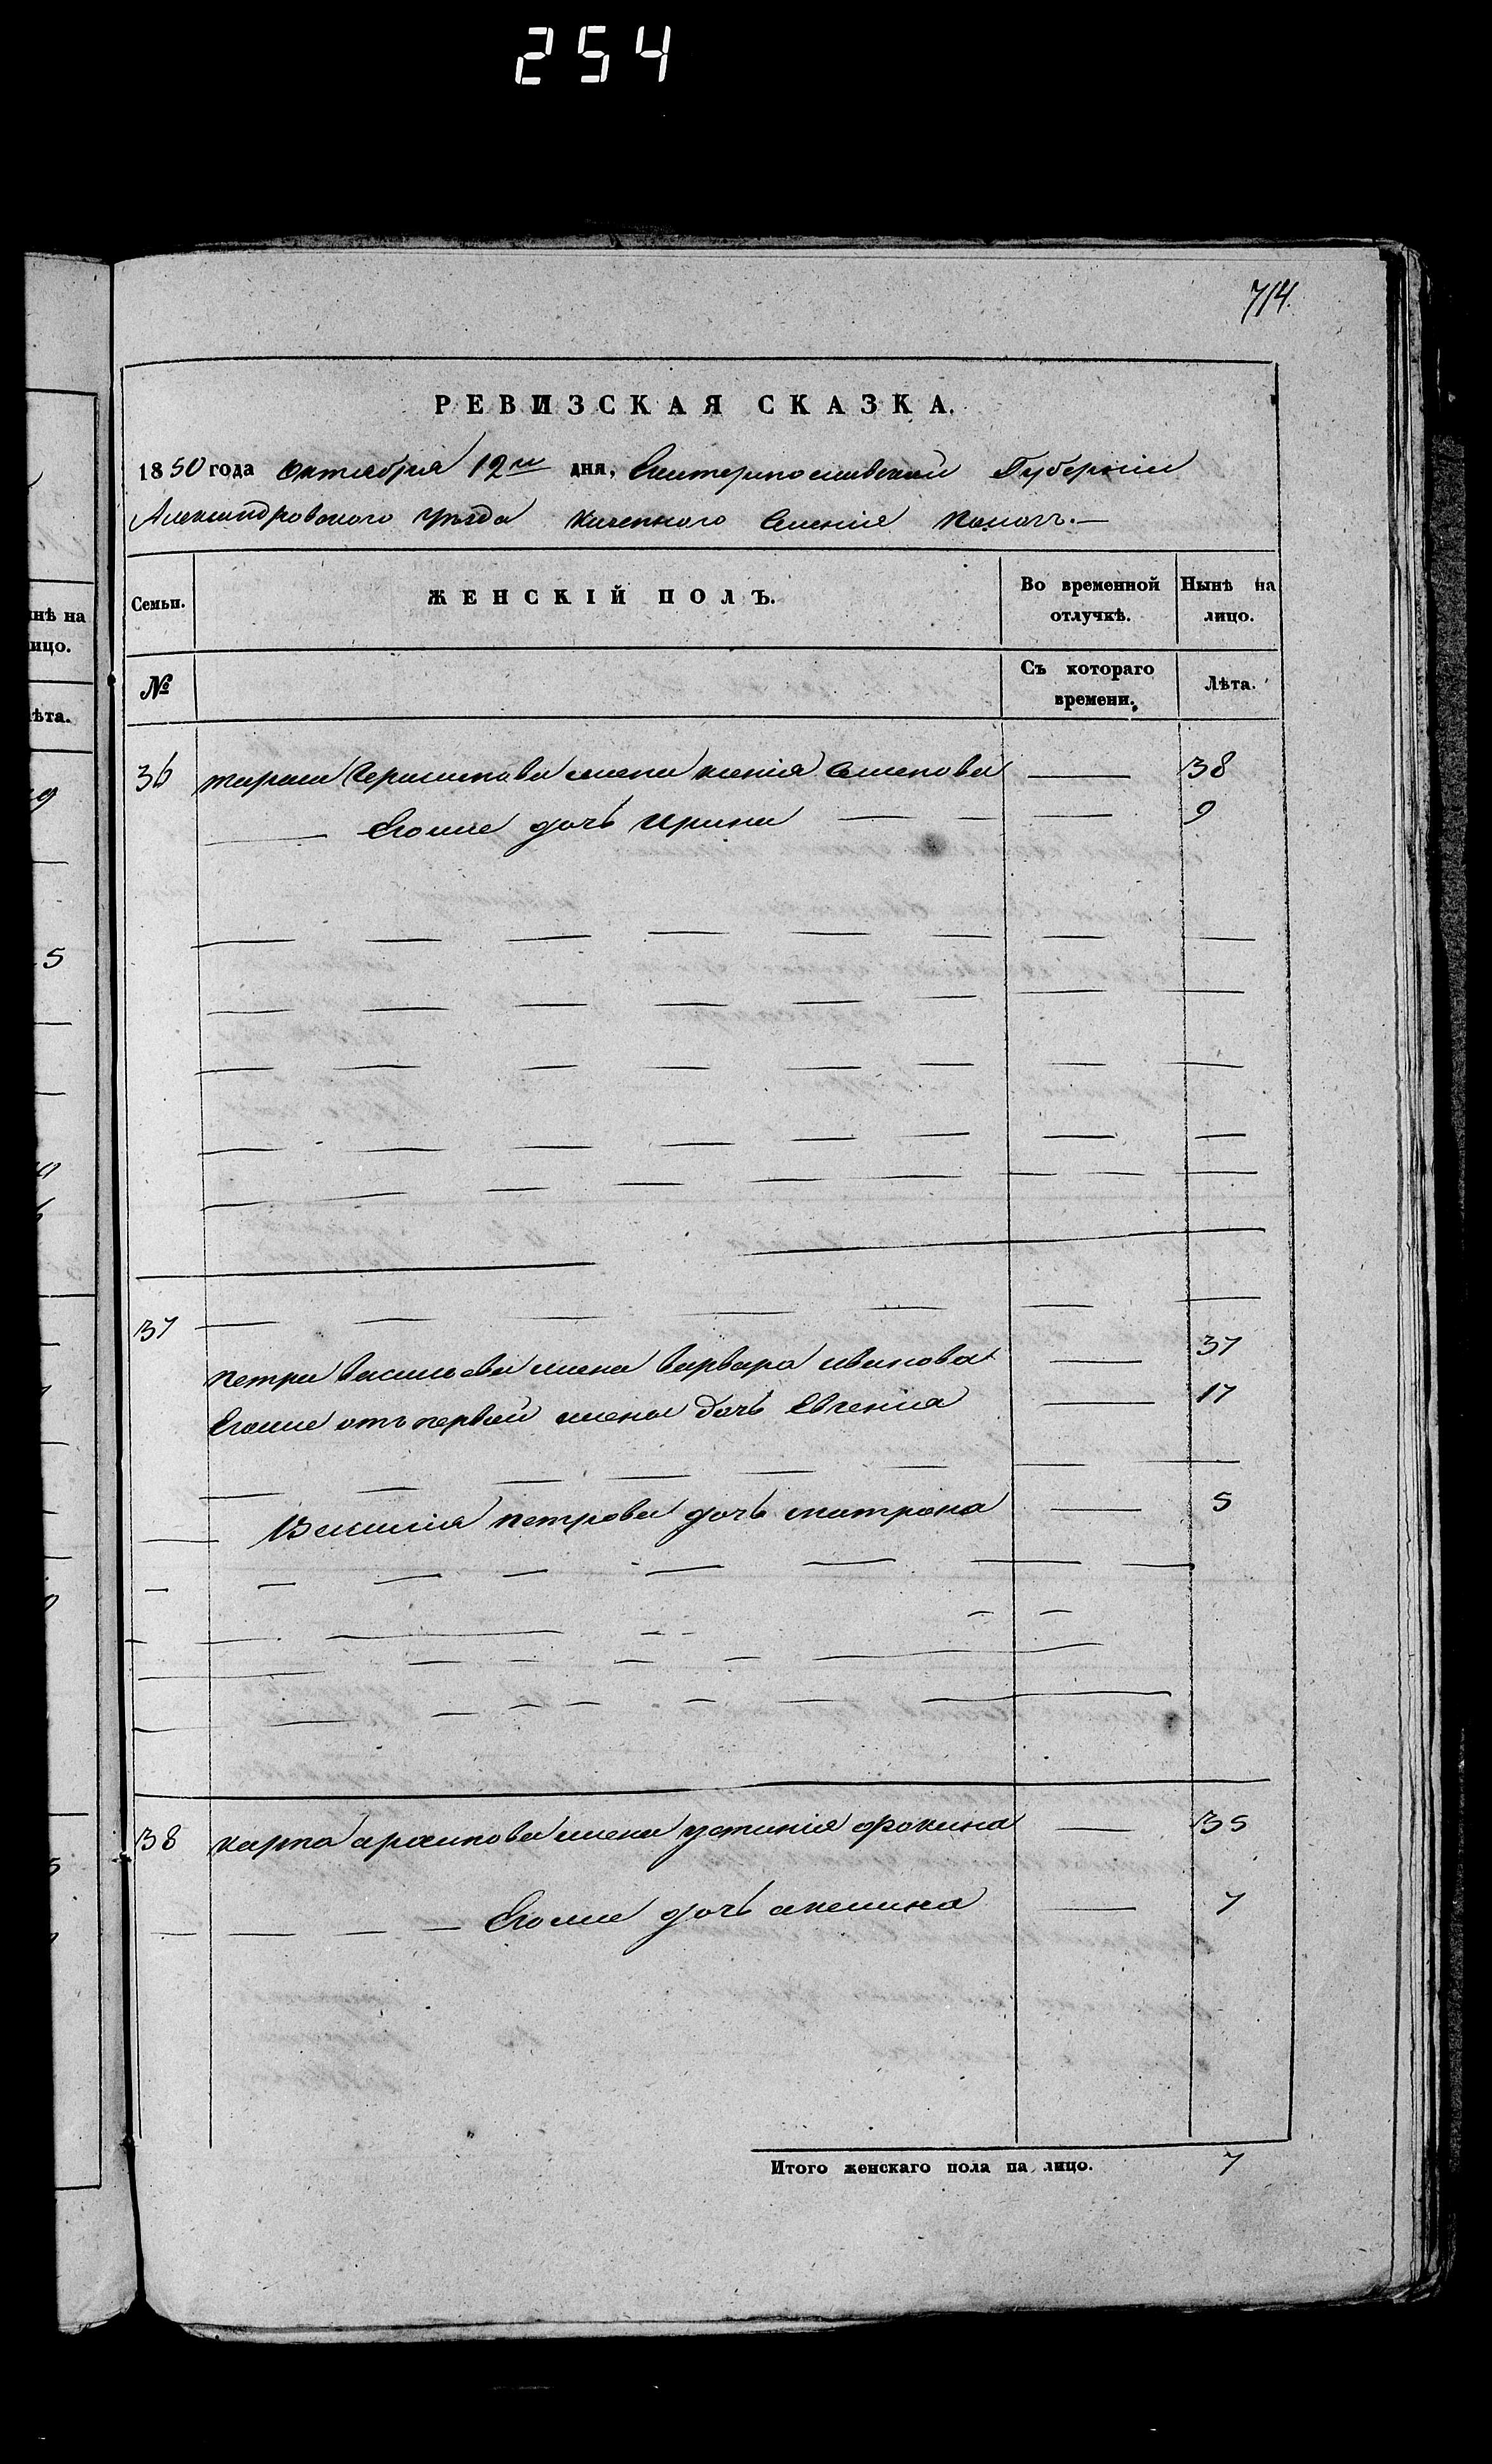 254
714.
РЕВИЗСКАЯ СКАЗКА.
1850 года Октября 12го дня, Екатеринославской Губерніи
Александровского уѣзда казенного Селенія
Семьи. ЖЕНСКІЙ ПОЛЪ. Во временной отлучкѣ. Нынѣ на лицо.
№ Съ котораго времени. Лѣта.
36 тараса Герасимова жена ксенія Семенова — 38
— Егоже дочь Ирина — — — 9
37
петра васильева жена варвара иванова — 37
Егоже отъ первой жены дочь Евгенія — 17
— петрова дочь матрона — 5
38 карпа жена устинія фокина — 35
— Егоже дочь акелина — 7
Итого женскаго пола на лицо. 7